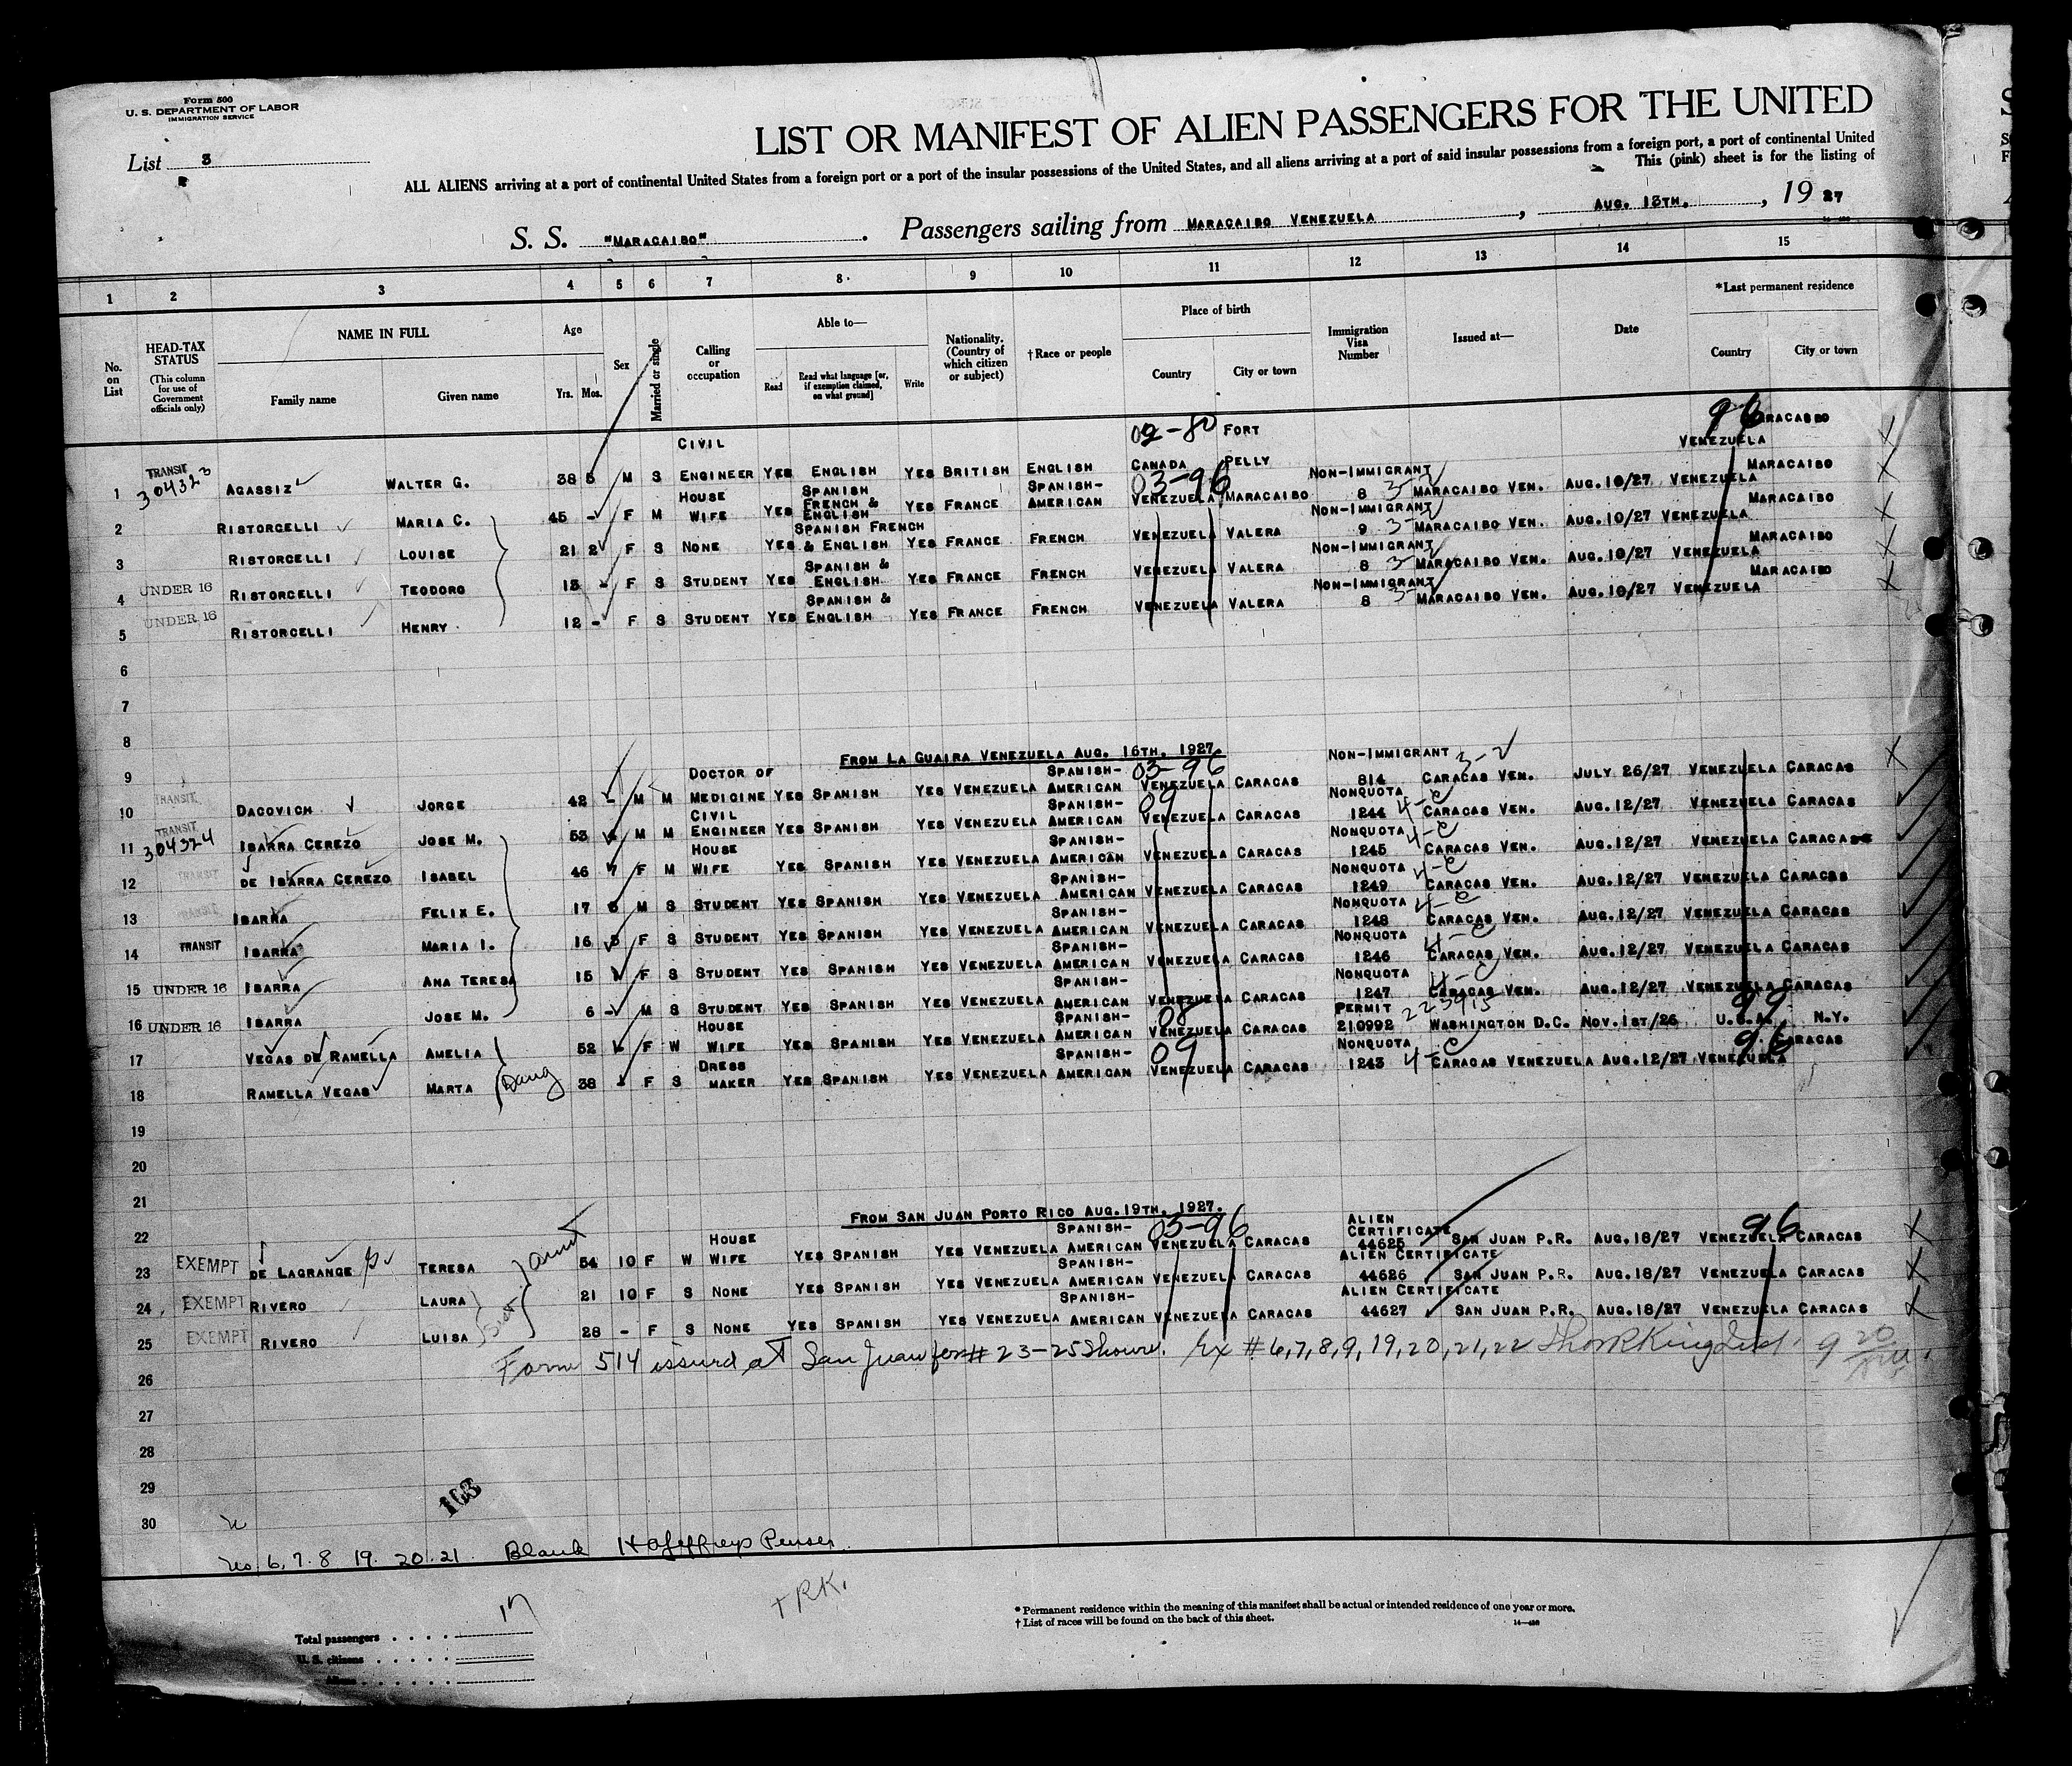 Form 500
U. S. DEPARTMENT OF LABOR
IMMIGRATION SERVICE
List 3
LIST OR MANIFEST OF ALIEN PASSENGERS FOR THE UNITED
ALL ALIENS arriving at a port of continental United States from a foreign port or a port of the insular possessions of the United States, and all aliens arriving at a port of said insular possessions from a foreign port, a port of continental United
This (pink) sheet is for the listing of
S. S. "MARACAIBO". Passengers sailing from MARACAIBO VENEZUELA, AUG. 13TH., 19 27
1 2 3 4 5 6 7 8 9 10 11 12 13 14 15
No. on List
HEAD-TAX STATUS (This column for use of Government officials only)
NAME IN FULL Family name Given name
Age Yrs. Mos.
Sex
Married or single
Calling or occupation
Able to— Read Read what language [or, if exemption claimed, on what ground] Write
Nationality. (Country of which citizen or subject)
†Race or people
Place of birth Country City or town
Immigration Visa Number
Issued at—
Date
*Last permanent residence Country City or town
1 TRANSIT 304323 AGASSIZ WALTER G. 38 5 M S CIVIL ENGINEER YES ENGLISH YES BRITISH ENGLISH 02-80 CANADA FORT PELLY NON-IMMIGRANT 8 3-2 MARACAIBO VEN. AUG.10/27 96 VENEZUELA MARACAIBO
2 RISTORCELLI MARIA C. 45 - F M HOUSE WIFE YES SPANISH FRENCH & ENGLISH YES FRANCE SPANISH-AMERICAN 03-96 VENEZUELA MARACAIBO NON-IMMIGRANT 9 3-2 MARACAIBO VEN. AUG.10/27 VENEZUELA MARACAIBO
3 RISTORCELLI LOUISE 21 2 F S NONE YES SPANISH FRENCH & ENGLISH YES FRANCE FRENCH VENEZUELA VALERA NON-IMMIGRANT 8 3- MARACAIBO VEN. AUG.10/27 VENEZUELA MARACAIBO
4 UNDER 16 RISTORCELLI TEODORO 13 - F S STUDENT YES SPANISH & ENGLISH YES FRANCE FRENCH VENEZUELA VALERA NON-IMMIGRANT 8 3- MARACAIBO VEN. AUG.10/27 VENEZUELA MARACAIBO
5 UNDER 16 RISTORCELLI HENRY 12 - F S STUDENT YES SPANISH & ENGLISH YES FRANCE FRENCH VENEZUELA VALERA
6
7
8
FROM LA GUAIRA VENEZUELA AUG. 16TH. 1927.
9
10 TRANSIT DACOVICH JORGE 42 - M M DOCTOR OF MEDICINE YES SPANISH YES VENEZUELA SPANISH-AMERICAN 03-96 VENEZUELA CARACAS NON-IMMIGRANT 814 3-2 CARACAS VEN. JULY 26/27 VENEZUELA CARACAS
11 TRANSIT 304324 IBARRA CEREZO JOSE M. 53 M M CIVIL ENGINEER YES SPANISH YES VENEZUELA SPANISH-AMERICAN 09 VENEZUELA CARACAS NONQUOTA 1244 4-C CARACAS VEN. AUG.12/27 VENEZUELA CARACAS
12 TRANSIT DE IBARRA CEREZO ISABEL 46 7 F M HOUSE WIFE YES SPANISH YES VENEZUELA SPANISH-AMERICAN VENEZUELA CARACAS NONQUOTA 1245 4-C CARACAS VEN. AUG.12/27 VENEZUELA CARACAS
13 TRANSIT IBARRA FELIX E. 17 M S STUDENT YES SPANISH YES VENEZUELA SPANISH-AMERICAN VENEZUELA CARACAS NONQUOTA 1249 4-C CARACAS VEN. AUG.12/27 VENEZUELA CARACAS
14 TRANSIT IBARRA MARIA I. 16 F S STUDENT YES SPANISH YES VENEZUELA SPANISH-AMERICAN VENEZUELA CARACAS NONQUOTA 1248 4-C CARACAS VEN. AUG.12/27 VENEZUELA CARACAS
15 UNDER 16 IBARRA ANA TERESA 15 F S STUDENT YES SPANISH YES VENEZUELA SPANISH-AMERICAN VENEZUELA CARACAS NONQUOTA 1246 4-C CARACAS VEN. AUG.12/27 VENEZUELA CARACAS
16 UNDER 16 IBARRA JOSE M. 6 - M S STUDENT YES SPANISH YES VENEZUELA SPANISH-AMERICAN VENEZUELA CARACAS NONQUOTA 1247 4-C CARACAS VEN. AUG.12/27 VENEZUELA CARACAS
17 VEGAS DE RAMELLA AMELIA 52 F W HOUSE WIFE YES SPANISH YES VENEZUELA SPANISH-AMERICAN 08 VENEZUELA CARACAS PERMIT 210992 223915 WASHINGTON D.C. NOV.1ST/26 99 U.S.A. N.Y.
18 RAMELLA VEGAS MARTA Daug 38 - F S DRESS MAKER YES SPANISH YES VENEZUELA SPANISH-AMERICAN 09 VENEZUELA CARACAS NONQUOTA 1243 4-C CARACAS VENEZUELA AUG.12/27 96 VENEZUELA CARACAS
19
20
21
FROM SAN JUAN PORTO RICO AUG.19TH. 1927.
22
23 EXEMPT DE LAGRANGE TERESA aunt 54 10 F W HOUSE WIFE YES SPANISH YES VENEZUELA SPANISH-AMERICAN 03-96 VENEZUELA CARACAS ALIEN CERTIFICATE 44625 SAN JUAN P.R. AUG.18/27 96 VENEZUELA CARACAS
24 EXEMPT RIVERO LAURA 21 10 F S NONE YES SPANISH YES VENEZUELA SPANISH-AMERICAN VENEZUELA CARACAS ALIEN CERTIFICATE 44626 SAN JUAN P.R. AUG.18/27 VENEZUELA CARACAS
25 EXEMPT RIVERO LUISA Sist 28 - F S NONE YES SPANISH YES VENEZUELA SPANISH-AMERICAN VENEZUELA CARACAS ALIEN CERTIFICATE 44627 SAN JUAN P.R. AUG.18/27 VENEZUELA CARACAS
Form 514 issued at San Juan for # 23-25 Ex # 6,7,8,9,19,20,21,22
26
27
28
29
163
30
No. 6, 7. 8 19. 20. 21. Blank Purser
17
*Permanent residence within the meaning of this manifest shall be actual or intended residence of one year or more.
†List of races will be found on the back of this sheet.
Total passengers
U. S. citizens